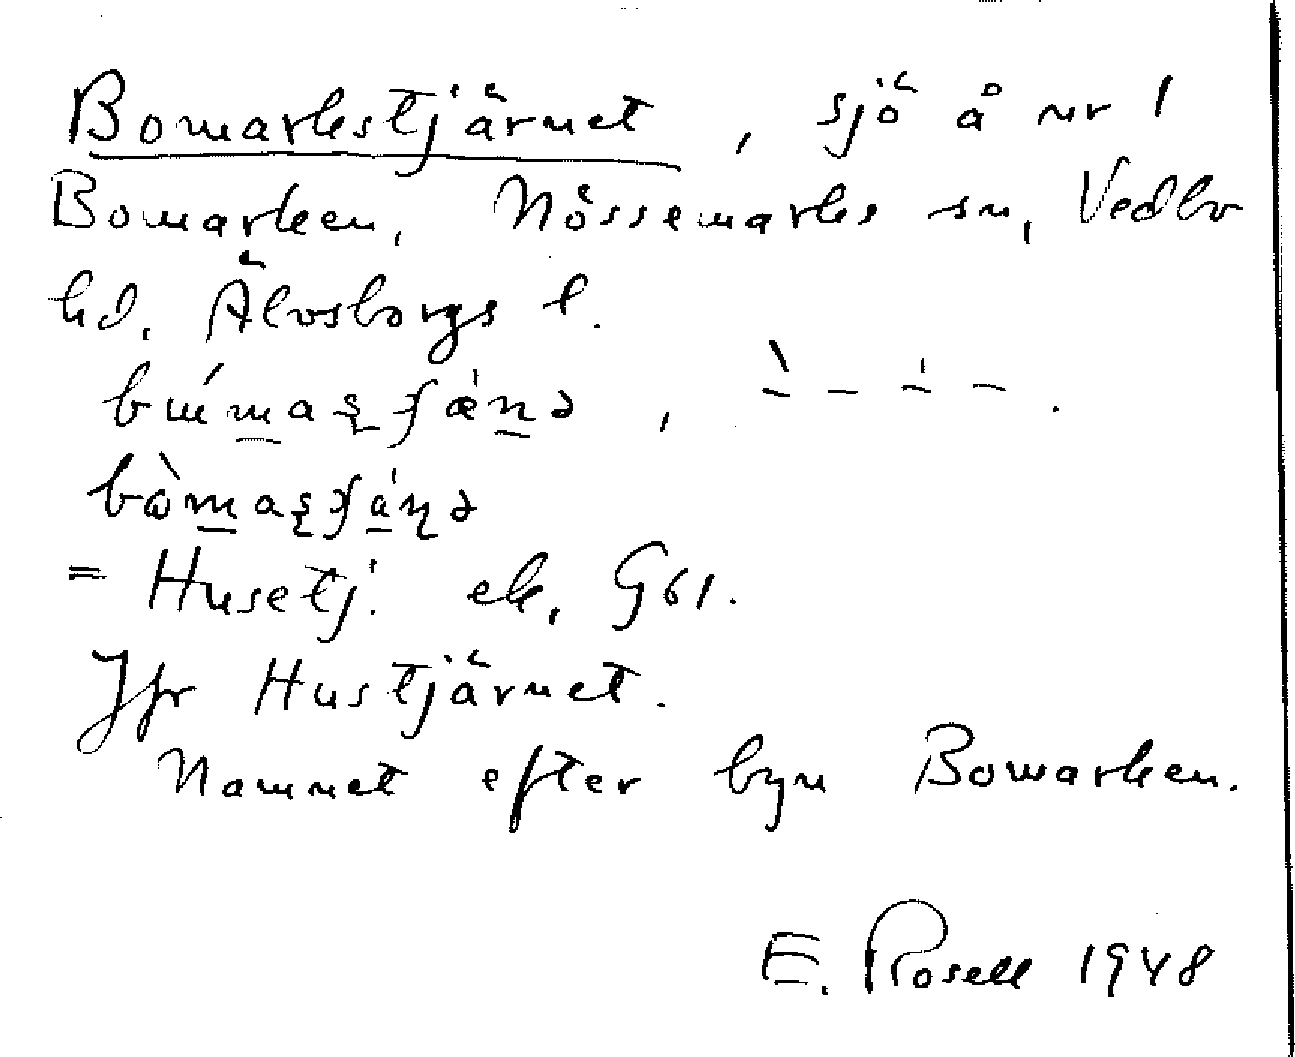 Bomarkstjärnet, sjö å nr 1
Bomarken, Nössemarks sn, Vedbo
hd. Älvsborgs l.
= Husetj. ek. G61.
Jfr Hustjärnet.
Namnet efter byn Bomarken.
E. Rosell 1948